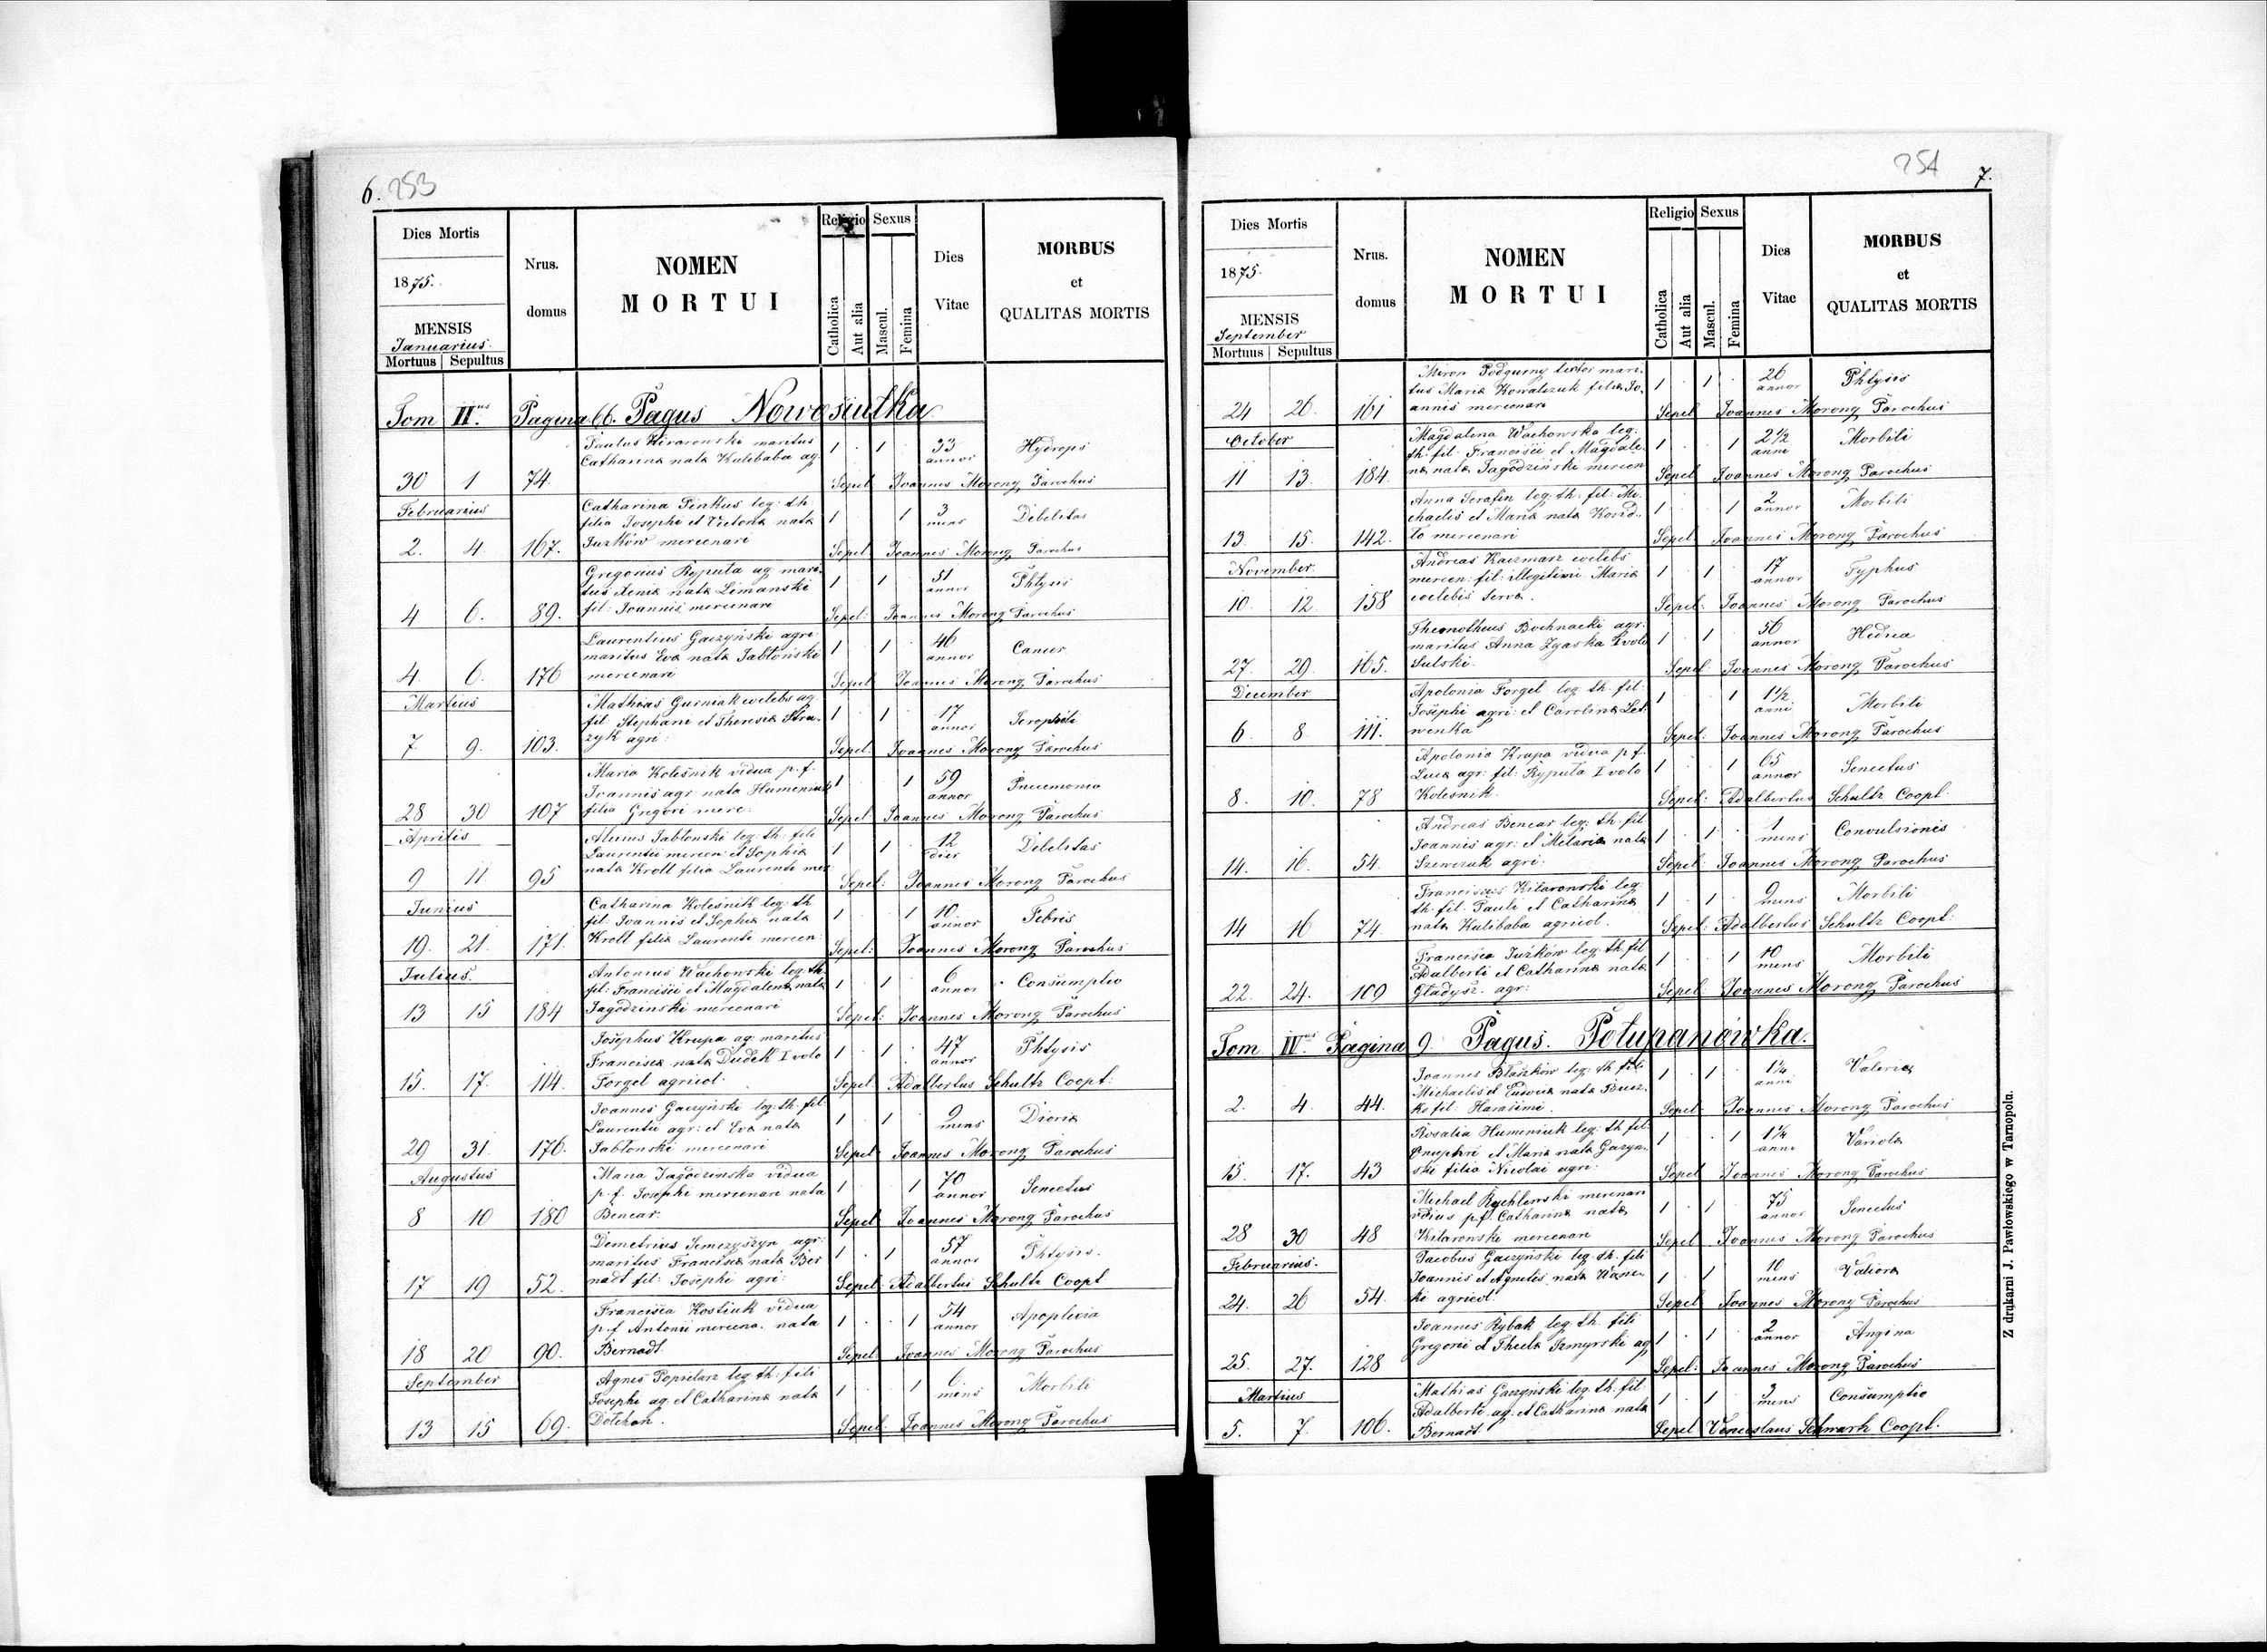 6. 253
Dies Mortis
1875.
MENSIS
Januarius.
Mortuus Sepultus
Nrus. domus
NOMEN
MORTUI
Religio
Catholica
Aut alia
Sexus
Mascul.
Femina
Dies
Vitae
MORBUS
et
QUALITAS MORTIS
Tom IIus. Pagina 66. Pagus Nowosiulka
Paulus Kitaronski maritus
Catharina nata Kulibaba ag.
30 1 74 1 1 33 annor Hydrops
Sepel Joannes Morong Parochus
Februarius
Catharina Pinkus leg: th
filia Josephi et Victoria nata
Juzków mercenari
2. 4 167. 1 1 3 mens Debelitas
Sepel Joannes Morong Parochus
Gregorius Ryputa ag. mari
tus Xenia nata Limanski
fil: Joannis mercenari
4 6. 89. 1 1 51 annor Phtysis
Sepel: Joannes Morong Parochus
Laurentius Gaczyński agri
maritus Eva nata Jabłoński
mercenari
4. 6. 176 1 1 46 annor Cancer
Sepel Joannes Morong Parochus
Martius
Mathias Gurniak coelebs ag
fil Stephani et Theresia Stra-
zyk agri:
7 9. 103. 1 1 17 annor Scrophuli
Sepel: Joannes Morong Parochus
Maria Kolesnik vidua p. f.
Joannis agr: nata Humeniuk
filia Gregori merc:
28 30 107 1 1 59 annor Pneumonia
Sepel: Joannes Morong Parochus
Aprilis
Jabłonski leg: th: fili
Laurentii mercen: et Sophia
nata Kroll filia Laurenti mer
9 11 95 1 1 12 dier Debelitas
Sepel: Joannes Morong Parochus
Junius
Catharina Kolesnik leg: th
fil: Joannis et Sophia nata
Kroll filia Laurenti mercen
19. 21. 171. 1 1 10 annor Febris
Sepel: Joannes Morong Parochus
Julius.
Antonius Wachowski leg: th.
fil: Francisii et Magdalena nata
Jagodzinski mercenari
13 15 184 1 1 6 annor Consumptio
Sepel: Joannes Morong Parochus
Josephus Krupa ag: maritus
Francisca nata Dudek I volo
Forgel agricol.
15. 17. 114. 1 1 47 annor Phtysis
Sepel: Adalbertus Schultz Coopt:
Joannes Gaczyński leg: th. fil:
Laurentii agr: et Eva nata
Jabłonski mercenari
29 31. 176. 1 1 9 mens Dioria
Sepel Joannes Morong Parochus
Augustus
Maria Jagodzinska vidua
p. f. Josephi mercenari nata
Bencar.
8 10 180 1 1 70 annor Senectus
Sepel Joannes Morong Parochus
Demetrius Semczyszyn agr:
maritus Francisca nata Ber
nadt fil: Josephi agri:
17 19 52. 1 1 57 annor Phtysis.
Sepel: Adalbertus Schultz Coopt
Francisca Kostiuk vidua
p. f. Antonii mercena. nata
Bernadt.
18 20 90. 1 1 54 annor Apoplexia
Sepel Joannes Morong Parochus
September
Agnes Popielarz leg th: fili
Josephi ag. et Catharina nata
Dolchan.
13 15 69. 1 1 6 mens Morbili
Sepel Joannes Morong Parochus
254 7.
Dies Mortis
1875.
MENSIS
September
Mortuus Sepultus
Nrus. domus
NOMEN
MORTUI
Religio
Catholica
Aut alia
Sexus
Mascul.
Femina
Dies
Vitae
MORBUS
et
QUALITAS MORTIS
Miron Podgurny mari-
tus Maria Kowalczuk filia Jo-
annis mercenari
24 26. 161 1 1 26 annor Phtysis
Sepel Joannes Morong Parochus
October
Magdalena Wachowska leg:
th: fil. Francisii et Magdale-
na nata Jagodzinski mercen
11 13. 184. 1 1 2½ anni Morbili
Sepel Joannes Morong Parochus
Anna Serafin leg: th: fil: Mi-
chaelis et Maria nata Kozid-
lo mercenari
13. 15. 142. 1 1 2 annor Morbili
Sepel Joannes Morong Parochus
November
Andreas Kaczmarz coelebs
mercen: fil: illegitimi Maria
coelebis serva.
10. 12. 158 1 1 17 annor Typhus
Sepel: Joannes Morong Parochus
Themotheus Bochnacki agr:
maritus Anna Zgaska I volo
Sulski.
27. 29. 165. 1 1 56 annor
Sepel: Joannes Morong Parochus
December
Apolonia Forgel leg. th. fil:
Josephi agri: et Carolina Let-
wenka
6. 8 111. 1 1 1½ anni Morbili
Sepel: Joannes Morong Parochus
Apolonia Krupa vidua p. f.
Luca agr: fil: Ryputa I volo
Kolesnik.
8. 10. 78 1 1 65 annor Senectus
Sepel: Adalbertus Schultz Coopt.
Andreas Bencar leg: th: fil
Joannis agr: et Melania nata
Szewczuk agri:
14. 16. 54. 1 1 1 mens Convulsiones
Sepel: Joannes Morong Parochus
Franciscus Kitaronski leg:
th: fil: Pauli et Catharina
nata Kulibaba agricol.
14 16 74. 1 1 9 mens Morbili
Sepel: Adalbertus Schultz Coopt:
Francisca Juzków leg: th. fil
Adalberti et Catharina nata
Gładysz. agr:
22. 24. 109 1 1 10 mens Morbili
Sepel Joannes Morong Parochus
Tom IVus Pagina 9. Pagus. Połupanówka.
Joannes Błazków leg: th fili
Michaelis et Eudocia nata Bucz-
ko fil: Harasimi.
2. 4 44. 1 1 1¼ anni
Sepel Joannes Morong Parochus
Rosalia Humeniuk leg: th fil:
Onuphri et Maria nata Gaczyn-
ski filia Nicolai agri:
15 17. 43 1 1 1¼ anni Variola
Sepel Joannes Morong Parochus
Michael Rychlewski mercenari
vidius p.f. Catharina nata
Kitaronski mercenari
28 30 48 1 1 75 annor Senectus
Sepel Joannes Morong Parochus
Februarius.
Jacobus Gaczyński leg. th. fili
Joannis et Agnetis nata
ki agricol.
24. 26 54. 1 1 10 mens
Sepel Joannes Morong Parochus
Joannes Rybak leg. th. fili
Gregorii et Thecla Szmyrski ag
25. 27. 128 1 1 2 annor Angina
Sepel: Joannes Morong Parochus
Martius
Mathias Gaczyński leg. th. fil:
Adalberti ag: et Catharina nata
Bernadt
5. 7. 106. 1 1 3 mens Consumptio
Sepel Venceslaus Schwark Coopt.
Z drukarni J. Pawłowskiego w Tarnopolu.